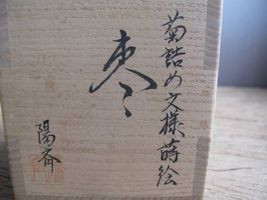 菊詰め文様蒔絵
棗
陽斎